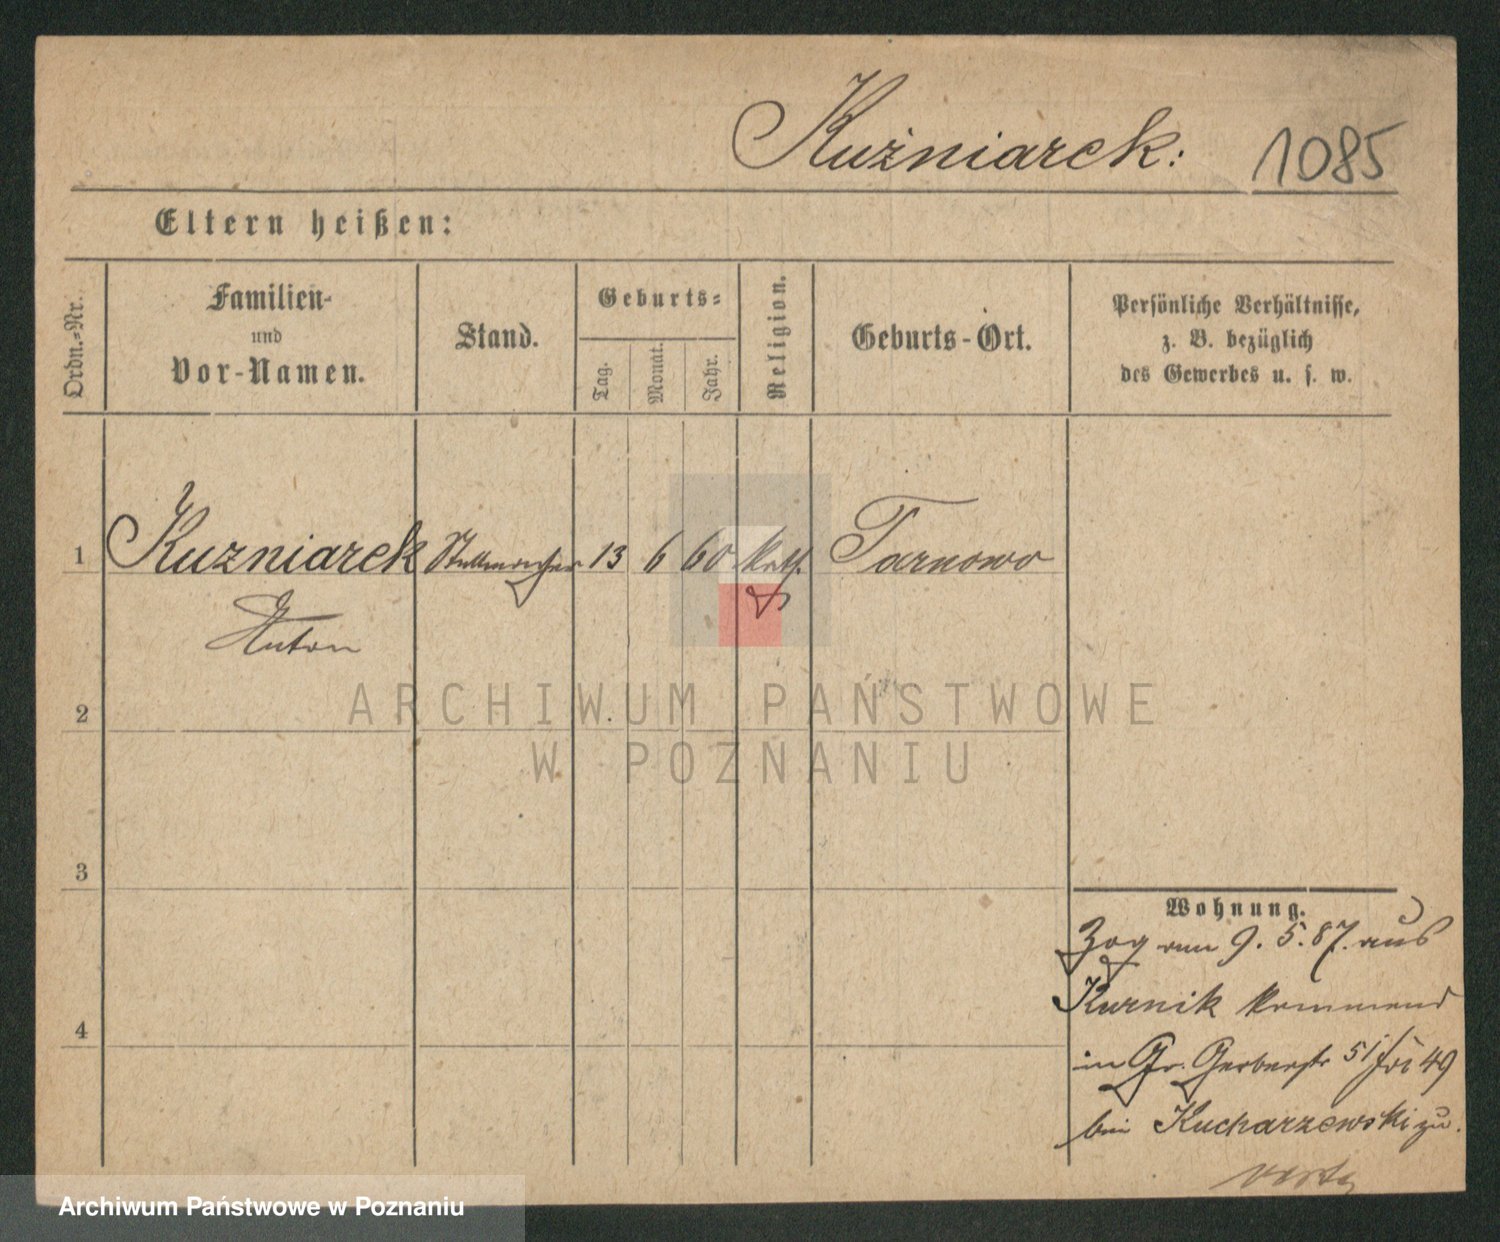 Kużniarek: 1085
Eltern heißen:
Ordn.-Nr.
Familien-
und
Vor-Namen.
Stand.
Geburts-
Tag.
Monat.
Jahr.
Religion.
Geburts-Ort.
Persönliche Verhältnisse,
z. B. bezüglich
des Gewerbes u. s. w.
1 Kuzniarek Stellmacher 13 6 60 kath. Tarnowo
Anton
2
3
4
Wohnung.
Zog am 9. 5. 87. aus
Kurnik kommend
in Gr. Gerberstr 51 49
bei Kucharzewski zu.
ARCHIWUM PAŃSTWOWE
W POZNANIU
Archiwum Państwowe w Poznaniu